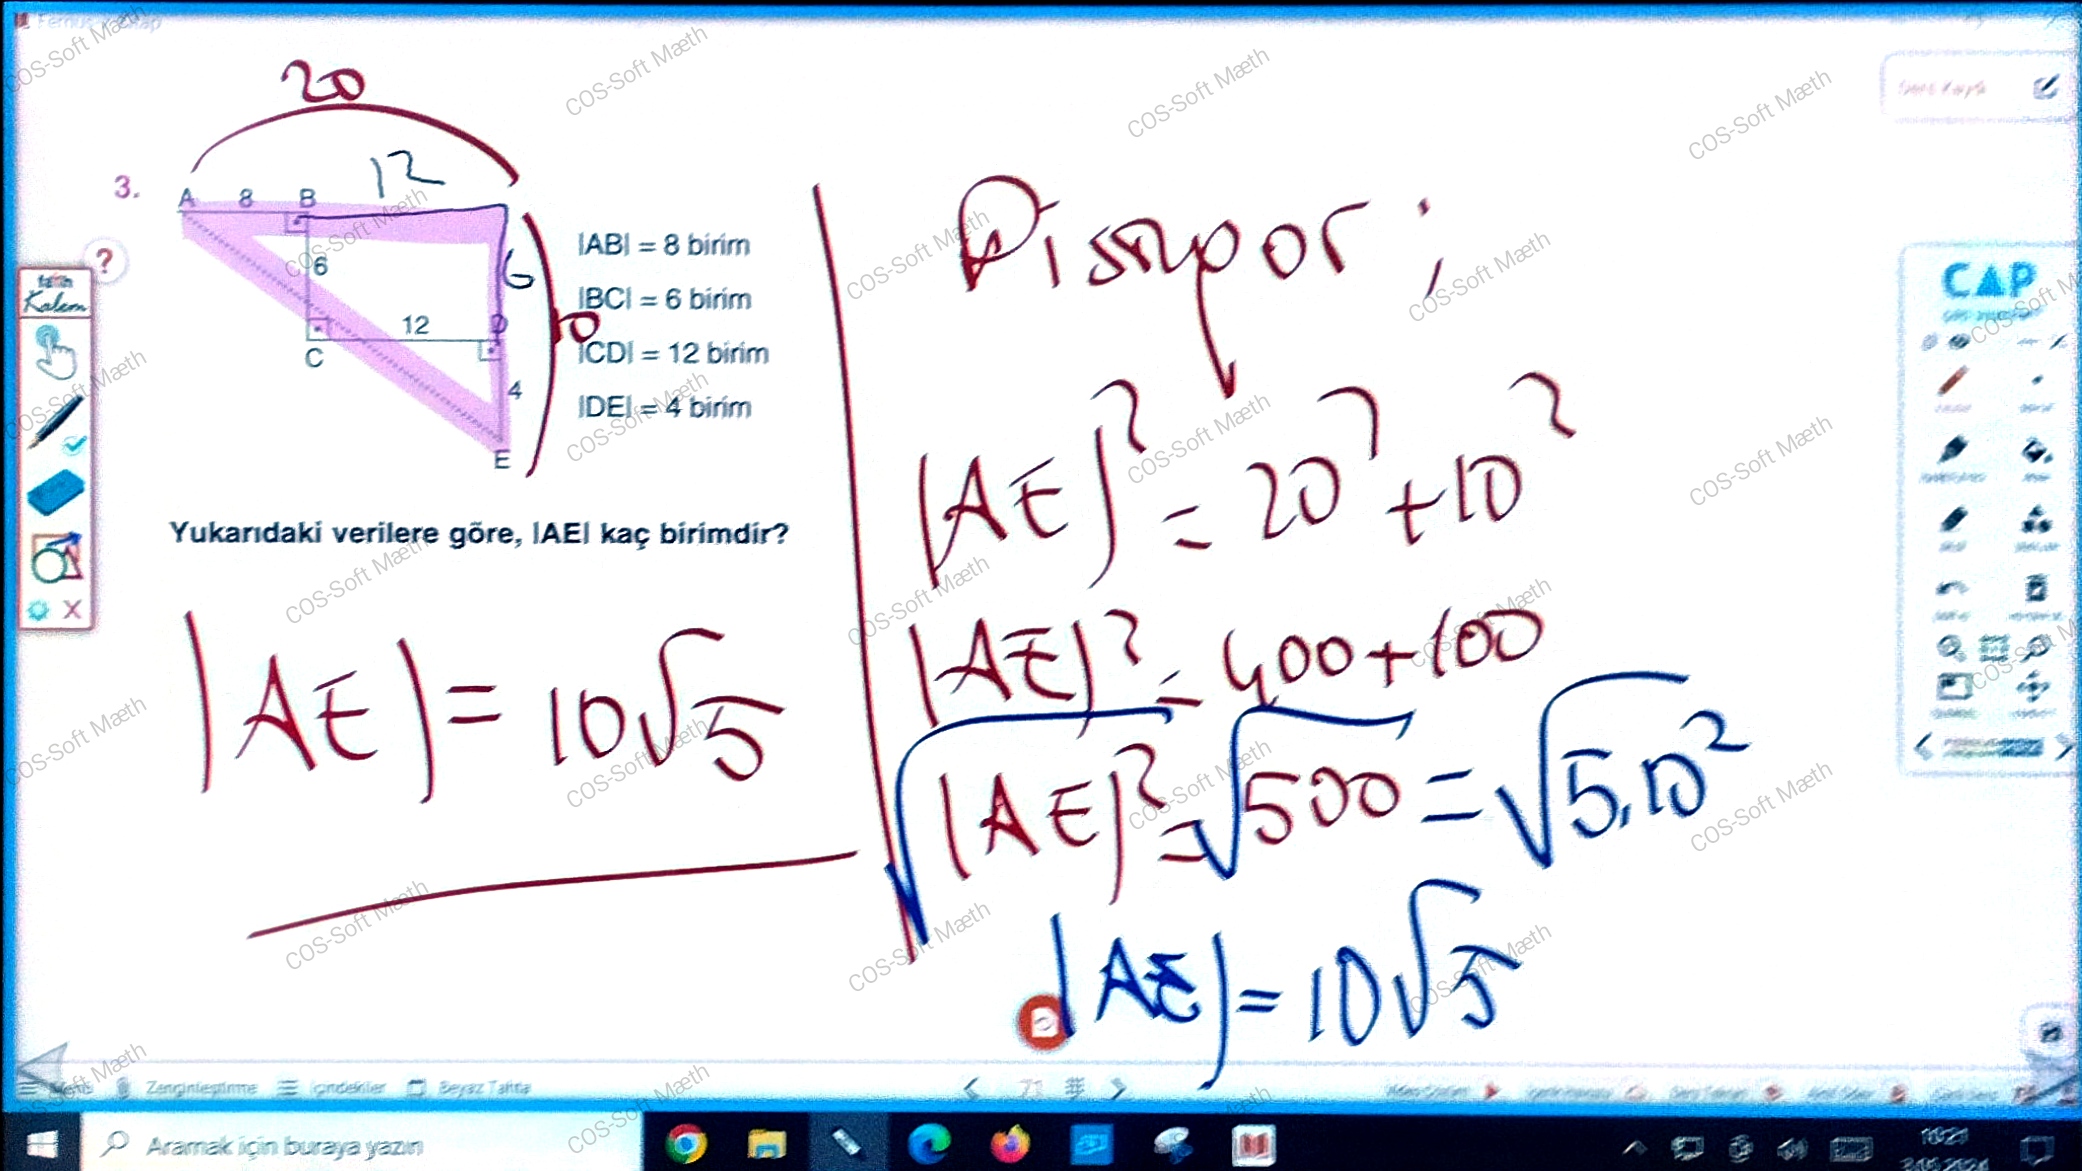 20
12
3.
A 8 B
6
6
|AB| = 8 birim
|BC| = 6 birim
12 D
10
|CD| = 12 birim
C
4
|DE| = 4 birim
E
Yukarıdaki verilere göre, |AE| kaç birimdir?
|AE| = 10√5
|AE|² = 20² + 10²
|AE|² = 400 + 100
√|AE|² = √500 = √5.10²
|AE| = 10√5
?
Kalem
CAP
Zenginleştirme
İçindekiler
Beyaz Tahta
Aramak için buraya yazın
COS-Soft Mæth